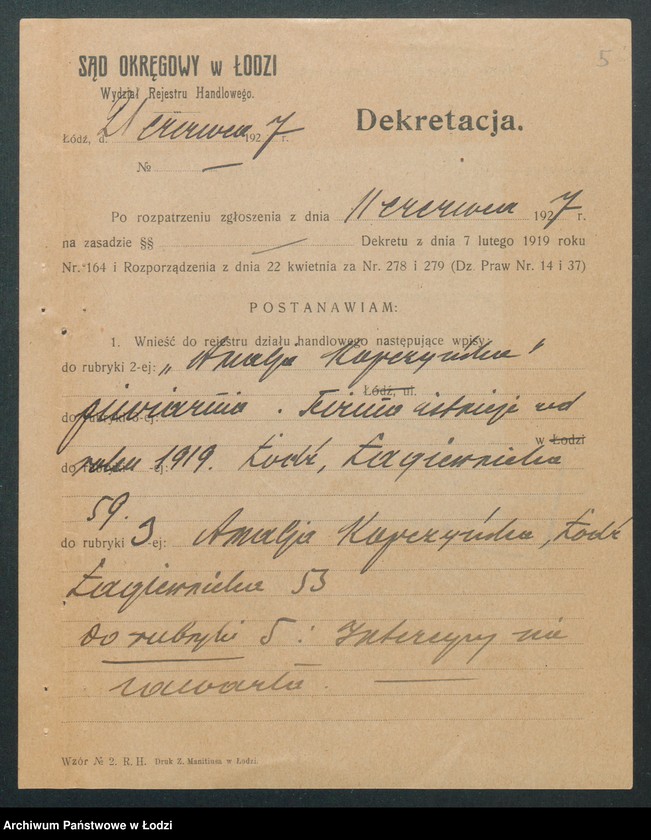 5
SĄD OKRĘGOWY w ŁODZI
Wydział Rejestru Handlowego.
Łódź, d. 21 czerwca 1927 r.
Dekretacja.
№ —
Po rozpatrzeniu zgłoszenia z dnia 11 czerwca 1927 r.
na zasadzie §§ — Dekretu z dnia 7 lutego 1919 roku
Nr. 164 i Rozporządzenia z dnia 22 kwietnia za Nr. 278 i 279 (Dz. Praw Nr. 14 i 37)
POSTANAWIAM:
1. Wnieść do rejestru działu handlowego następujące wpisy:
do rubryki 2-ej: „Amalja Kopczyńska"
Łódź, ul.
do rubryki 3-ej: piwiarnia. Firma istnieje od
w Łodzi
do rubryki -ej: roku 1919. Łódź, Łagiewnicka
59.
do rubryki 3-ej: Amalja Kopczyńska, Łódź
Łagiewnicka 53
do rubryki 5: Intercyzy nie
zawarła. —
Wzór № 2. R. H. Druk Z. Manitiusa w Łodzi.
Archiwum Państwowe w Łodzi